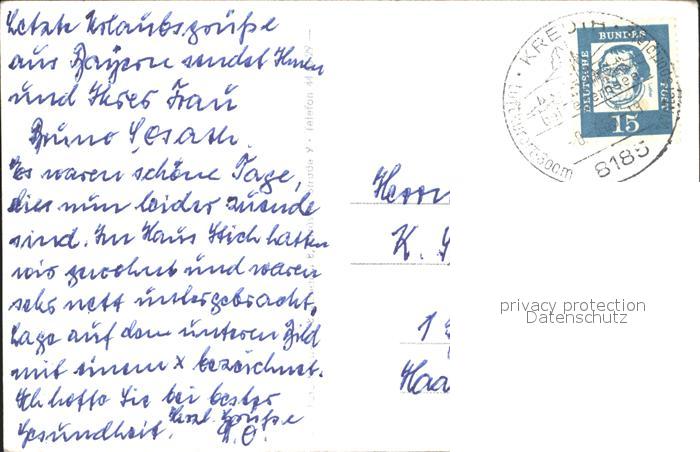 Letzte Urlaubsgrüße
aus Bayern sendet Ihnen
und Ihrer Frau
Bruno
Es waren schöne Tage,
die nun leider zuende
sind. Im Haus Stich hatten
wir gewohnt und waren
sehr nett untergebracht.
Lage auf dem unteren Bild
mit einem x bezeichnet.
Ich hoffe Sie bei bester
Gesundheit. Herzl. Grüße
Herrn
K.
1
Haa
KREUTH
8185
DEUTSCHE
BUNDES
POST
15
Telefon
privacy protection
Datenschutz